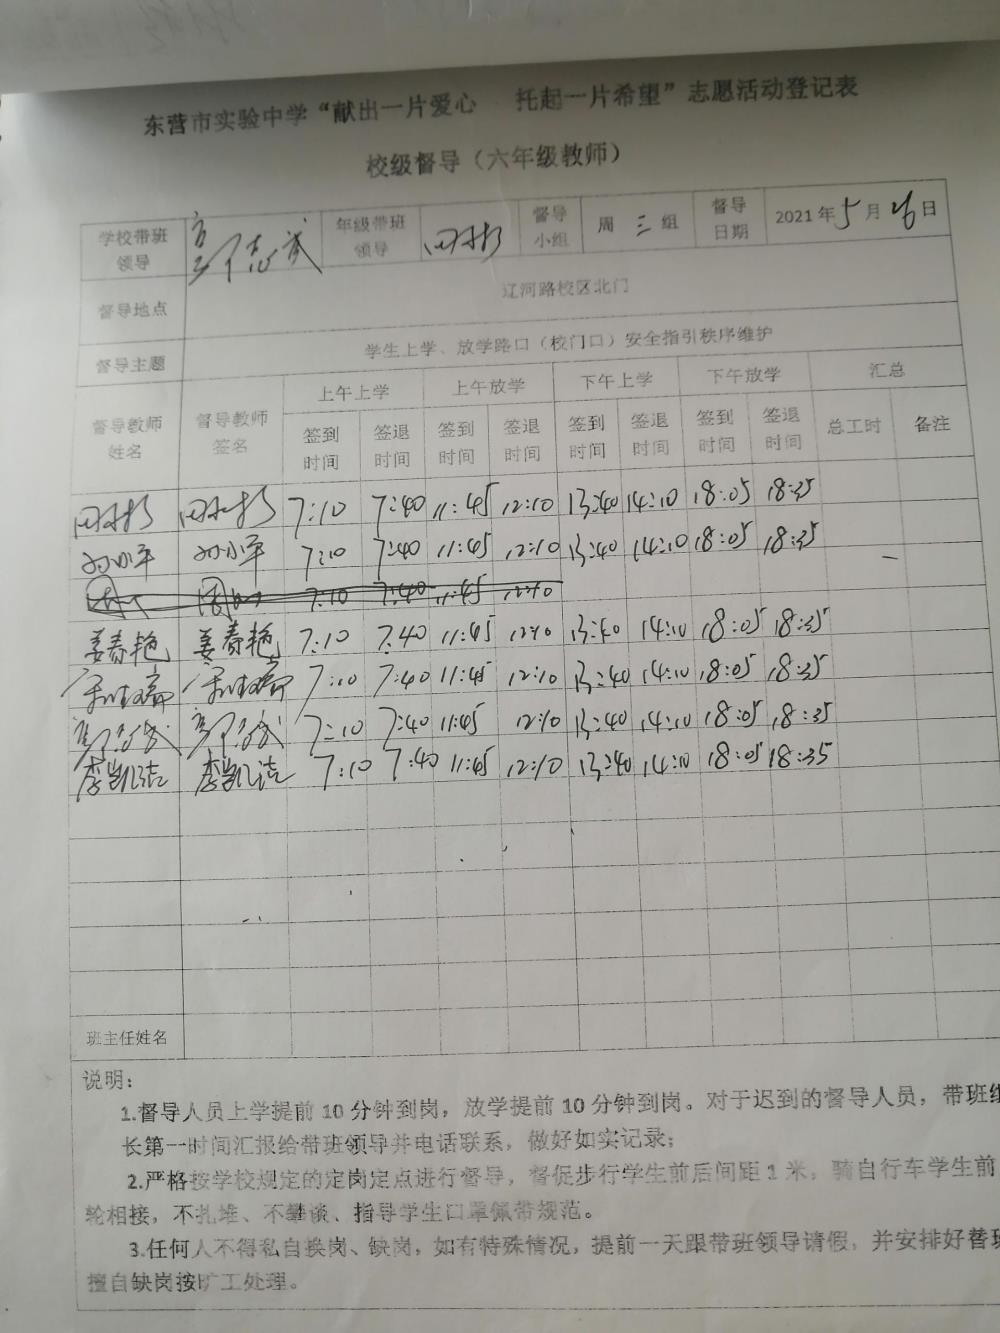 东营市实验中学“献出一片爱心 托起一片希望”志愿活动登记表
校级督导（六年级教师）
学校带班领导 年级带班领导 督导小组 周三组 督导日期 2021年5月26日
督导地点 辽河路校区北门
督导主题 学生上学、放学路口（校门口）安全指引秩序维护
督导教师姓名 督导教师签名 上午上学 上午放学 下午上学 下午放学 汇总
签到时间 签退时间 签到时间 签退时间 签到时间 签退时间 签到时间 签退时间 总工时 备注
7:10 7:40 11:45 12:10 13:40 14:10 18:05 18:35
孙小军 孙小军 7:10 7:40 11:45 12:10 13:40 14:10 18:05 18:35
7:10 7:40 11:45 12:10
姜春艳 姜春艳 7:10 7:40 11:45 12:10 13:40 14:10 18:05 18:35
7:10 7:40 11:45 12:10 13:40 14:10 18:05 18:35
7:10 7:40 11:45 12:10 13:40 14:10 18:05 18:35
李凯洁 李凯洁 7:10 7:40 11:45 12:10 13:40 14:10 18:05 18:35
班主任姓名
说明：
1.督导人员上学提前10分钟到岗，放学提前10分钟到岗。对于迟到的督导人员，带班组
长第一时间汇报给带班领导并电话联系，做好如实记录；
2.严格按学校规定的定岗定点进行督导，督促步行学生前后间距1米，骑自行车学生前
轮相接，不扎堆、不攀谈、指导学生口罩佩带规范。
3.任何人不得私自换岗、缺岗，如有特殊情况，提前一天跟带班领导请假，并安排好替班
擅自缺岗按旷工处理。